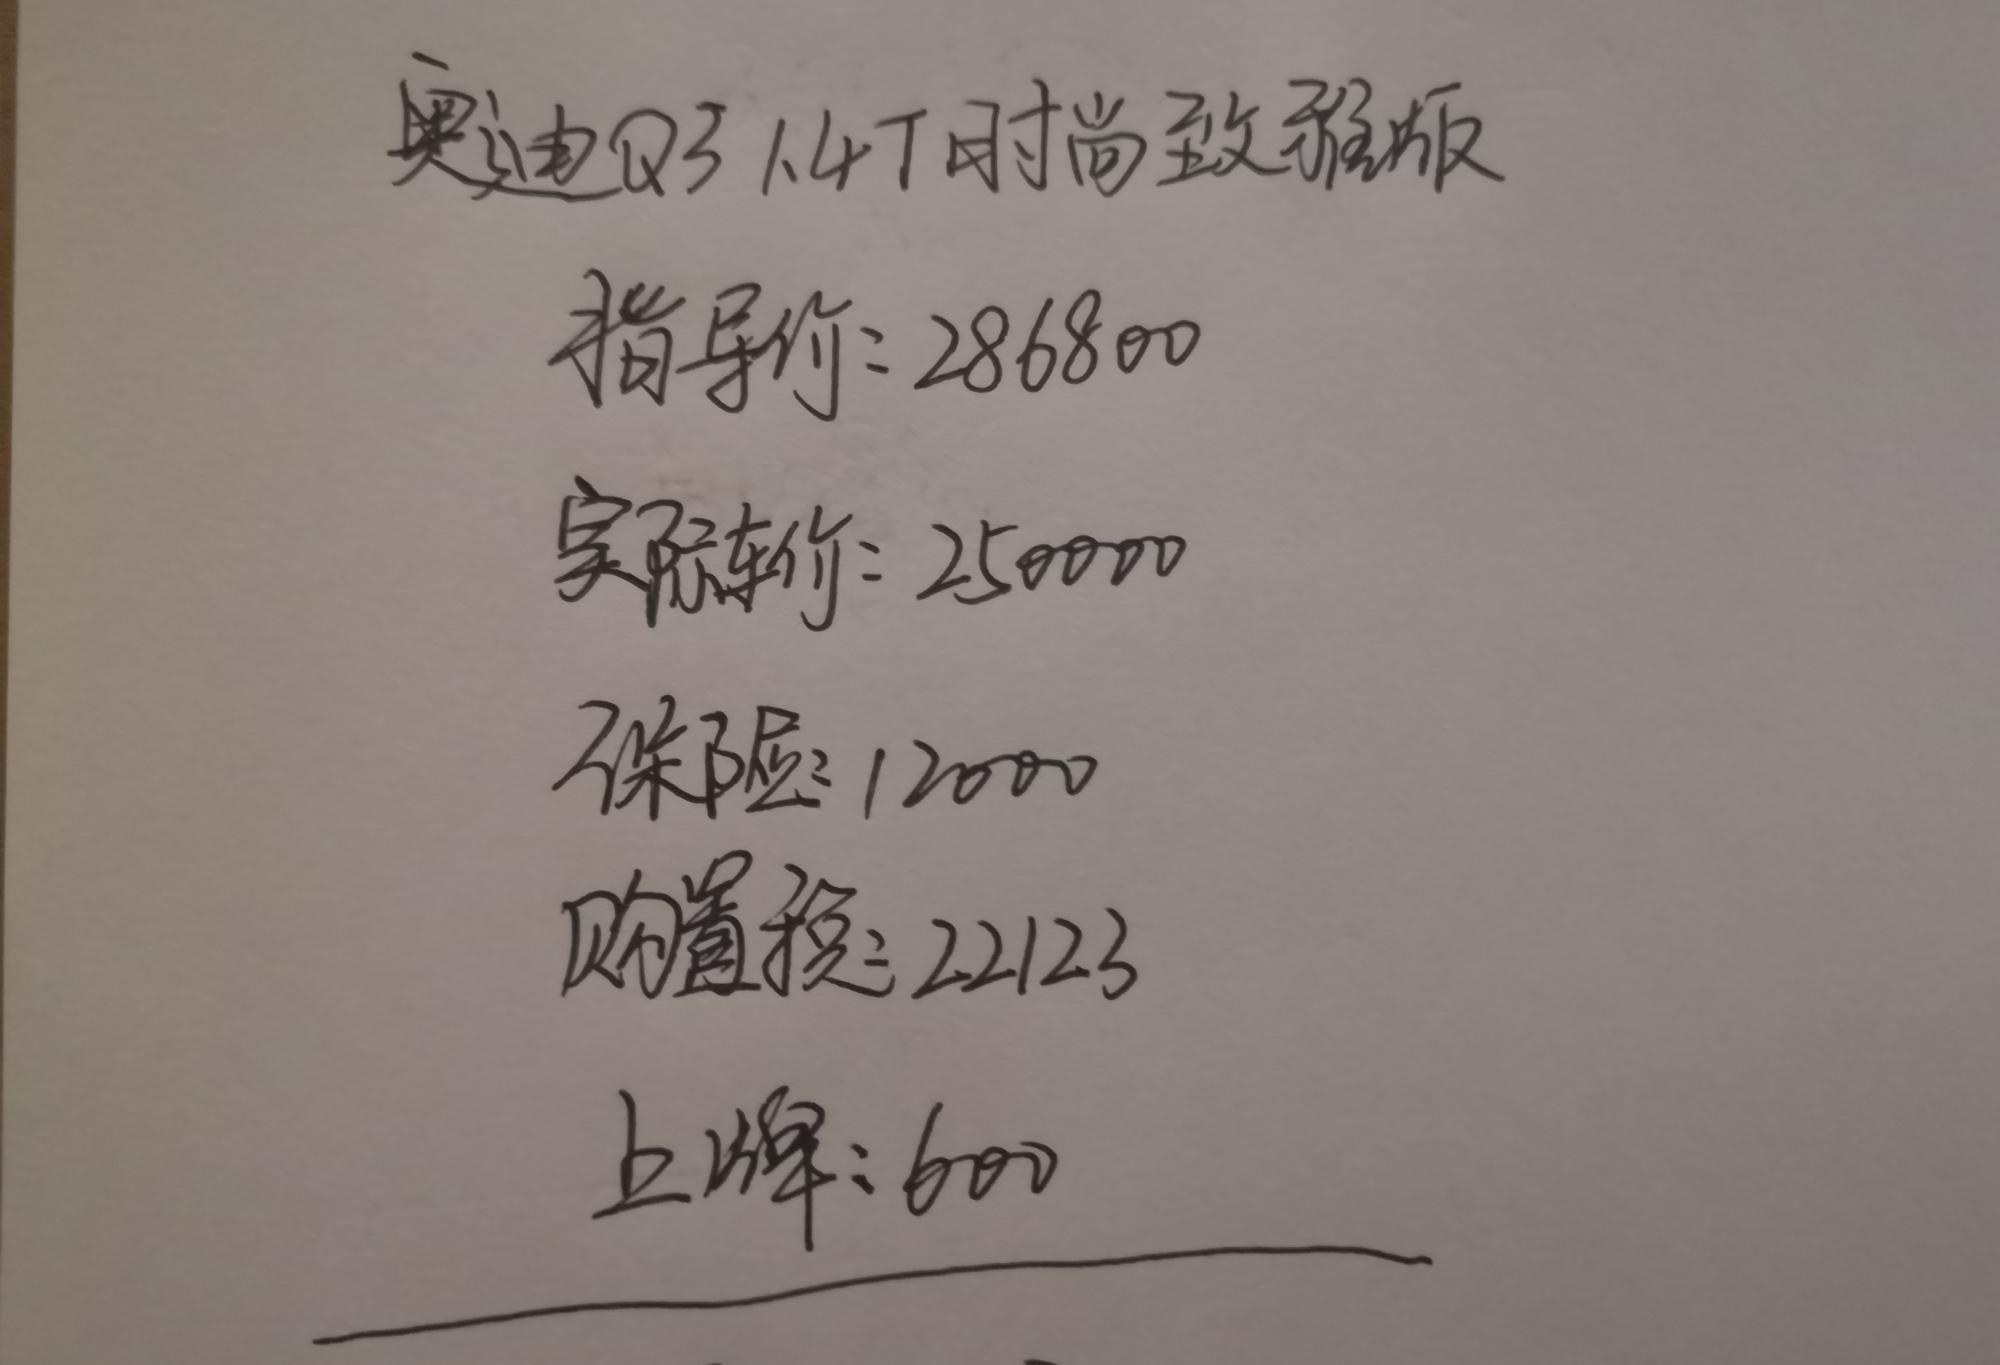 奥迪Q3 1.4T时尚致雅版
指导价：286800
实际车价：250000
保险：12000
购置税：22123
上牌：600